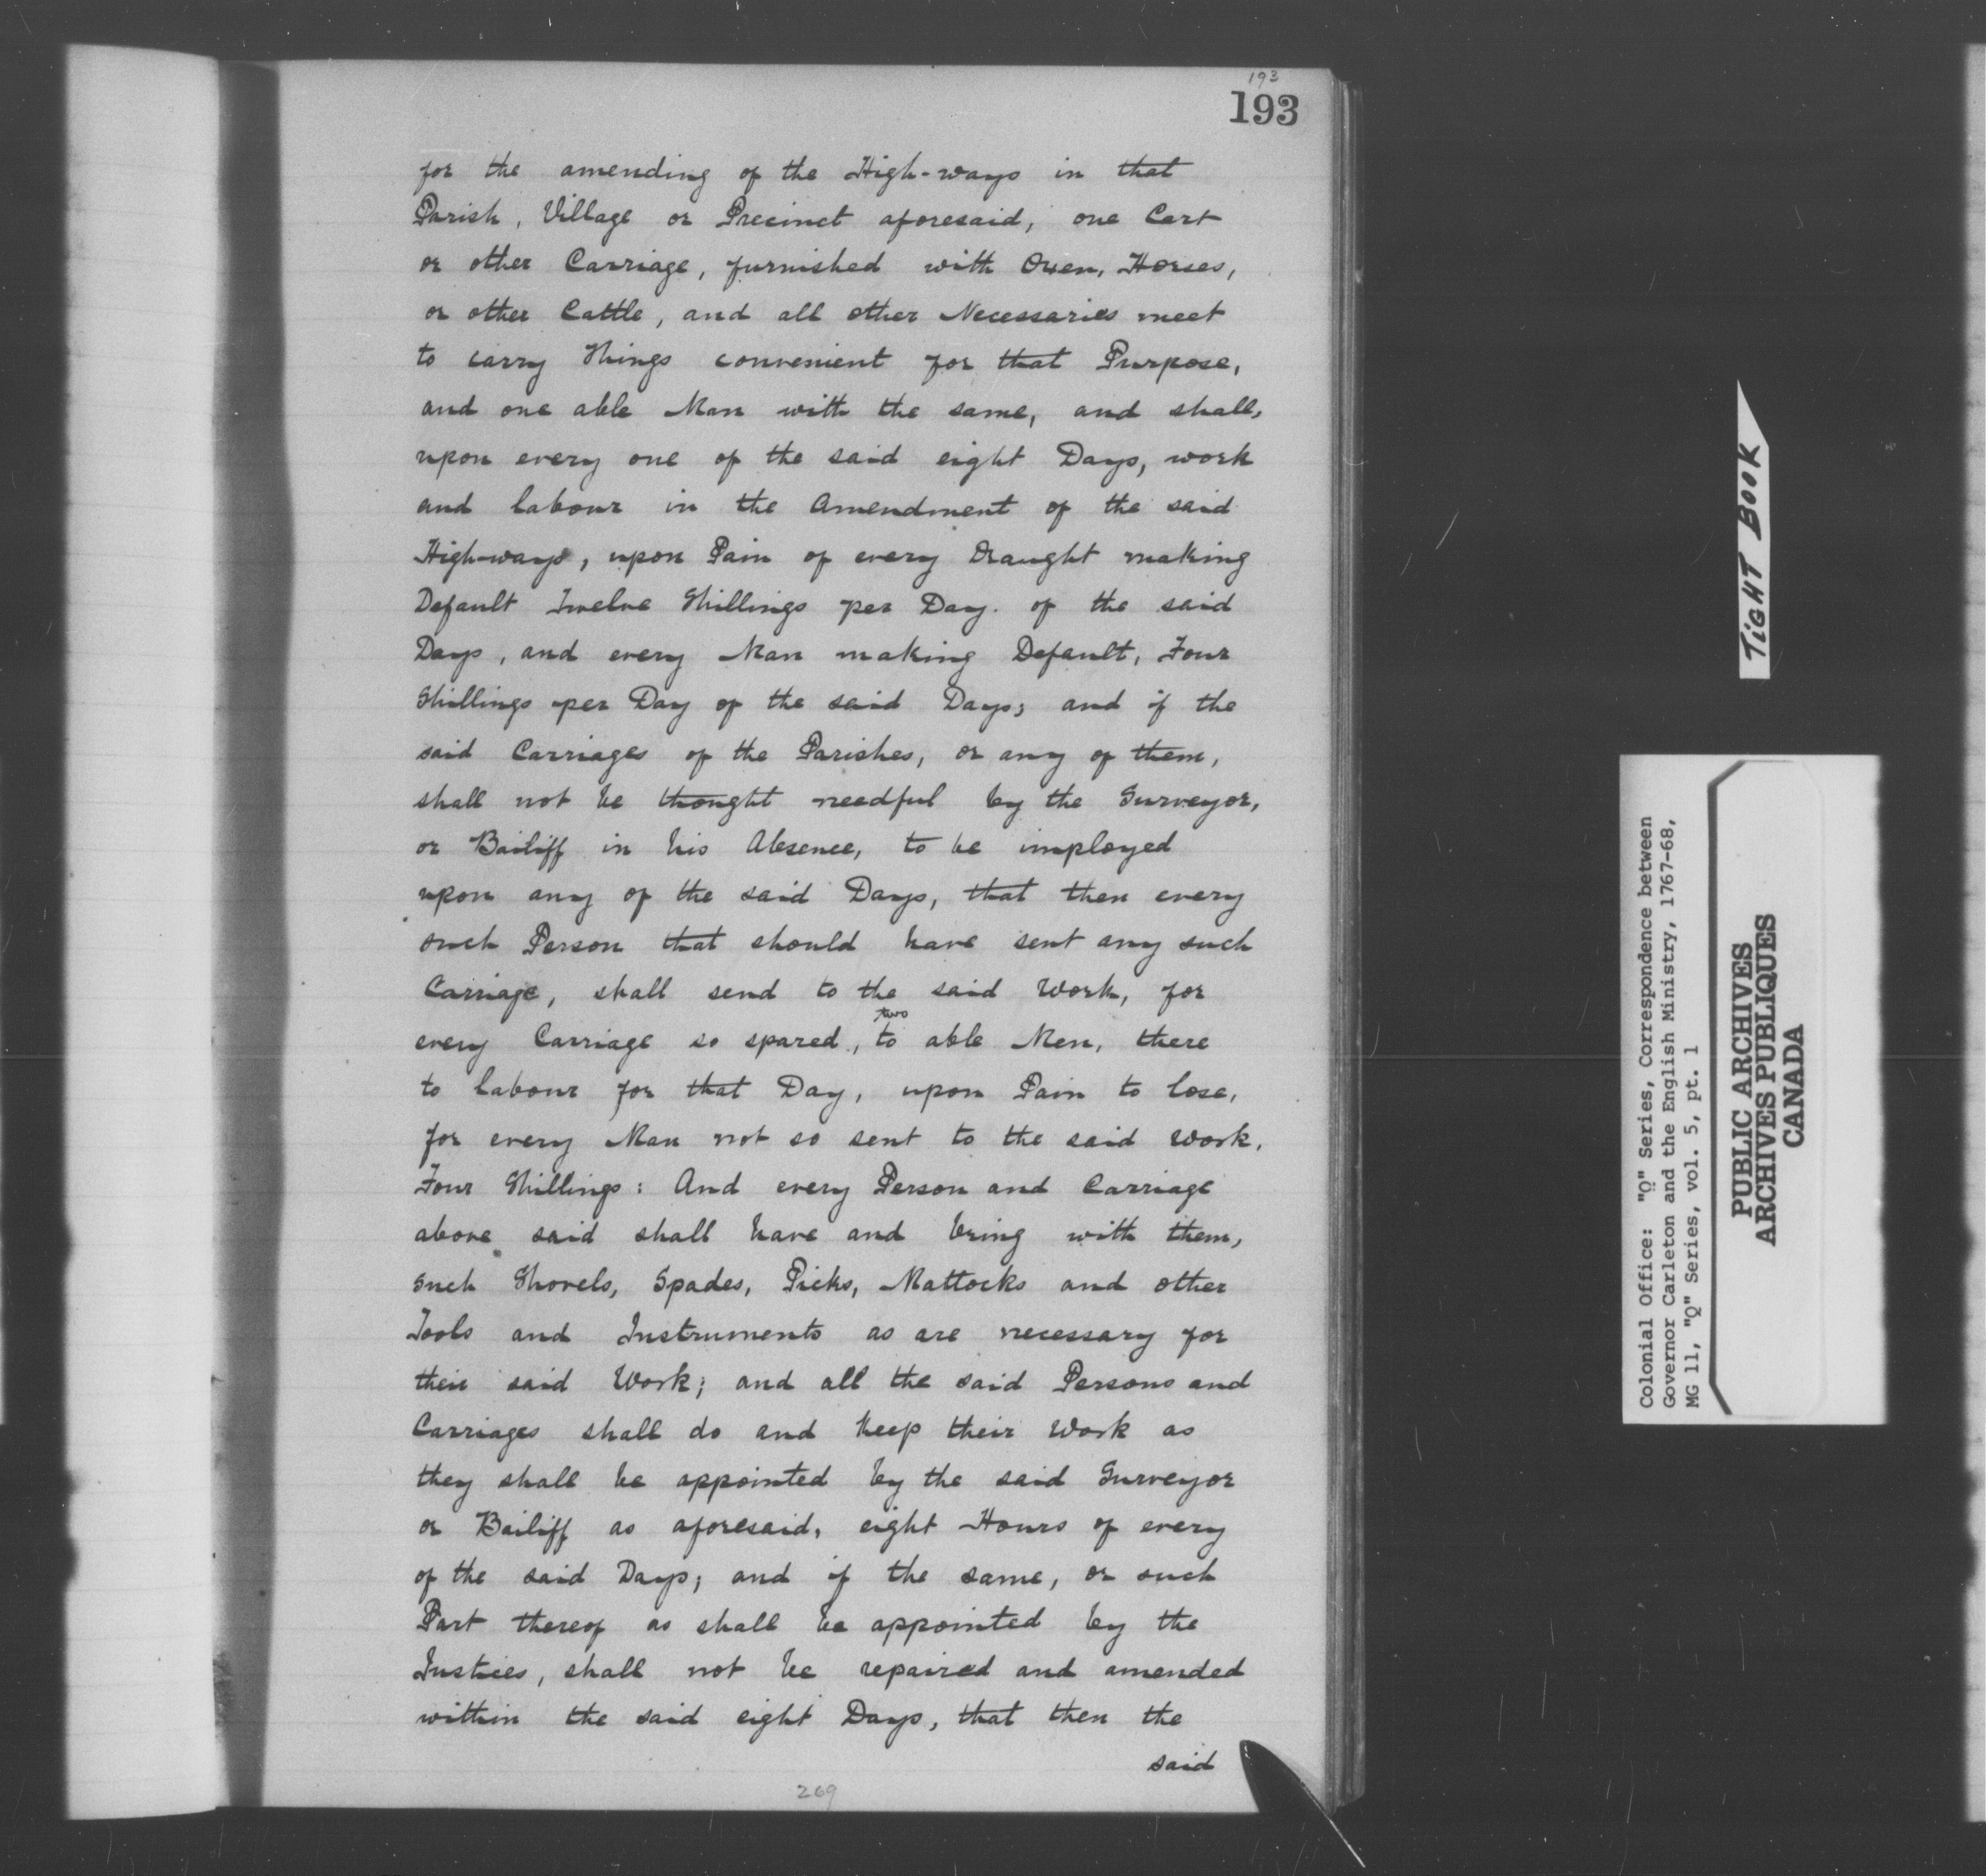 193
193
for the amending of the High-ways in that
Parish, Village or Precinct aforesaid, one Cart
or other Carriage, furnished with Oxen, Horses,
or other Cattle, and all other Necessaries meet
to carry Things convenient for that Purpose,
and one able Man with the same, and shall,
upon every one of the said eight Days, work
and labour in the Amendment of the said
High-ways, upon Pain of every Draught making
Default Twelve Shillings per Day. of the said
Days, and every Man making Default, Four
Shillings per Day of the said Days; and if the
said Carriages of the Parishes, or any of them,
shall not be thought needful by the Surveyor,
or Bailiff in his Absence, to be imployed
upon any of the said Days, that then every
such Person that should have sent any such
Carriage, shall send to the said Work, for
two
every Carriage so spared, to able Men, there
to labour for that Day, upon Pain to lose,
for every Man not so sent to the said work,
Four Shillings: And every Person and Carriage
above said shall have and bring with them,
such Shovels, Spades, Picks, Mattocks and other
Tools and Instruments as are necessary for
their said Work; and all the said Persons and
Carriages shall do and keep their Work as
they shall be appointed by the said Surveyor
or Bailiff as aforesaid, eight Hours of every
of the said Days; and if the same, or such
Part thereof as shall be appointed by the
Justices, shall not be repaired and amended
within the said eight Days, that then the
said
269
TIGHT BOOK
Colonial Office: "Q" Series, Correspondence between
Governor Carleton and the English Ministry, 1767-68,
MG 11, "Q" Series, vol. 5, pt. 1
PUBLIC ARCHIVES
ARCHIVES PUBLIQUES
CANADA